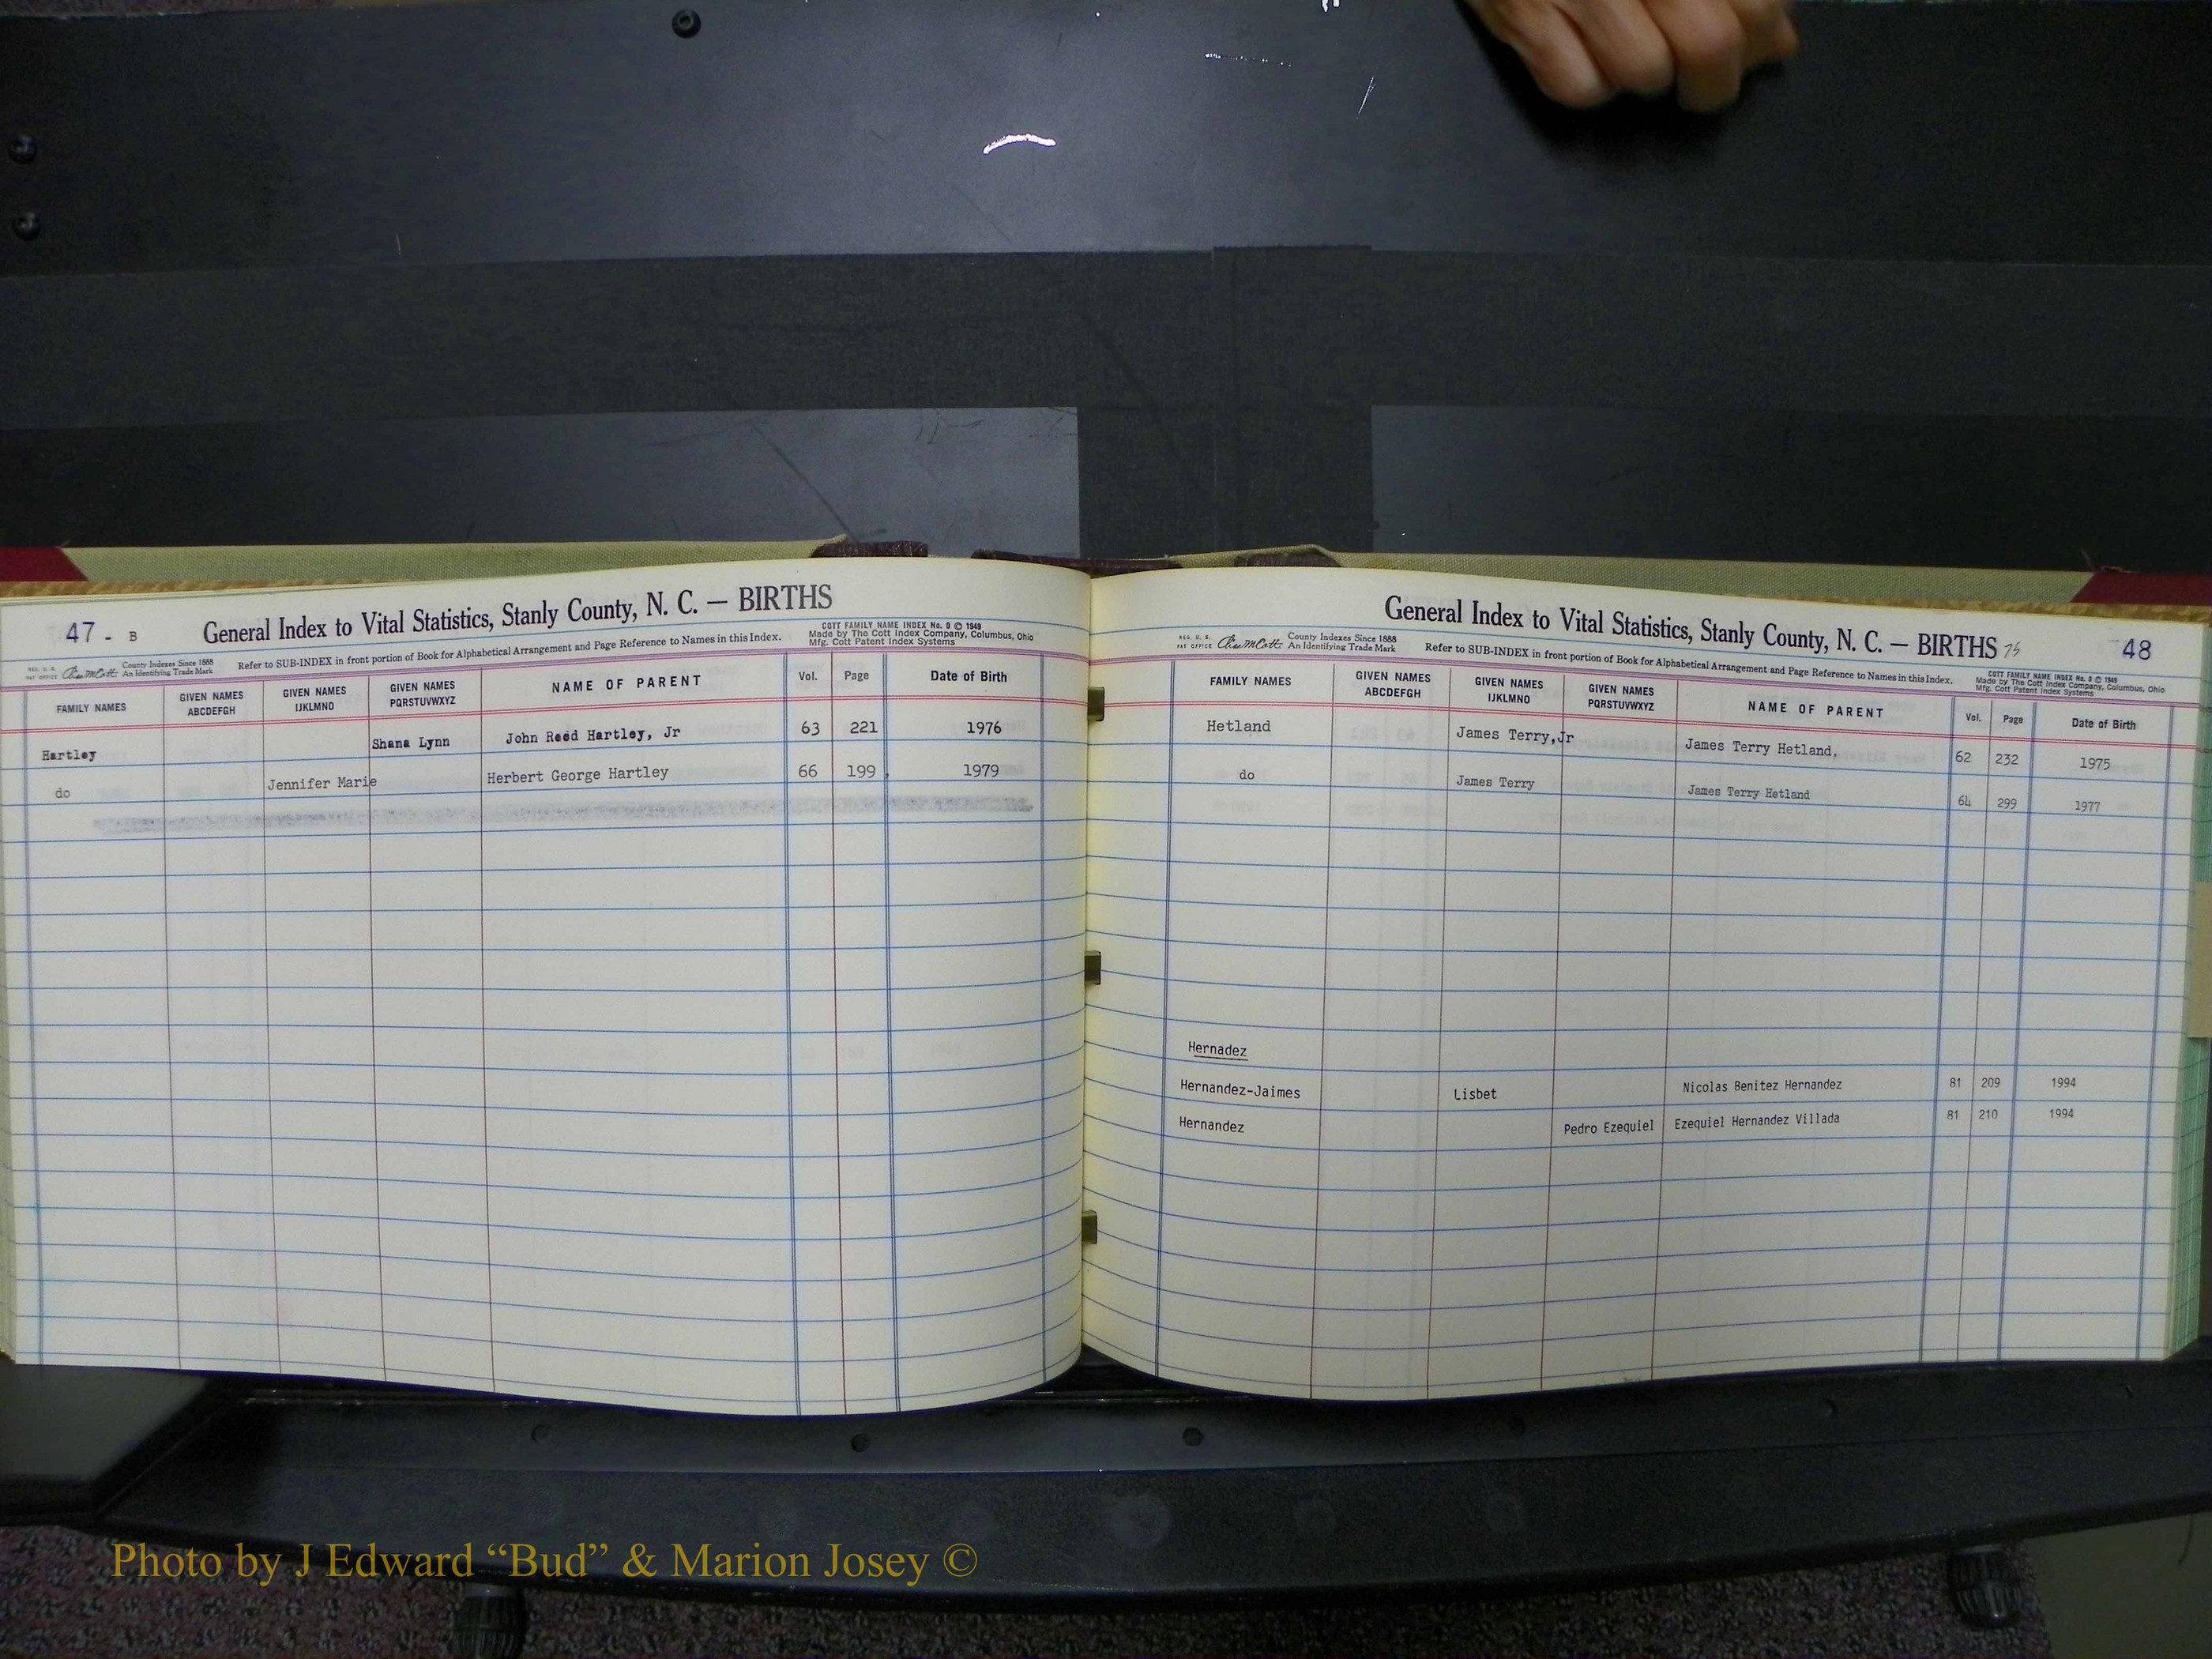 47 - B
General Index to Vital Statistics, Stanly County, N. C. — BIRTHS
COTT FAMILY NAME INDEX No. 0 © 1949
Made by The Cott Index Company, Columbus, Ohio
Mfg. Cott Patent Index Systems
County Indexes Since 1888
An Identifying Trade Mark
Refer to SUB-INDEX in front portion of Book for Alphabetical Arrangement and Page Reference to Names in this Index.
FAMILY NAMES GIVEN NAMES ABCDEFGH GIVEN NAMES IJKLMNO GIVEN NAMES PQRSTUVWXYZ NAME OF PARENT Vol. Page Date of Birth
Hartley Shana Lynn John Reed Hartley, Jr 63 221 1976
do Jennifer Marie Herbert George Hartley 66 199 1979
General Index to Vital Statistics, Stanly County, N. C. — BIRTHS 75
48
REG. U. S.
PAT OFFICE
County Indexes Since 1888
An Identifying Trade Mark
Refer to SUB-INDEX in front portion of Book for Alphabetical Arrangement and Page Reference to Names in this Index.
COTT FAMILY NAME INDEX No. 0 © 1949
Made by The Cott Index Company, Columbus, Ohio
Mfg. Cott Patent Index Systems
FAMILY NAMES GIVEN NAMES ABCDEFGH GIVEN NAMES IJKLMNO GIVEN NAMES PQRSTUVWXYZ NAME OF PARENT Vol. Page Date of Birth
Hetland James Terry,Jr James Terry Hetland, 62 232 1975
do James Terry James Terry Hetland 64 299 1977
Hernadez
Hernandez-Jaimes Lisbet Nicolas Benitez Hernandez 81 209 1994
Hernandez Pedro Ezequiel Ezequiel Hernandez Villada 81 210 1994
Photo by J Edward “Bud” & Marion Josey ©